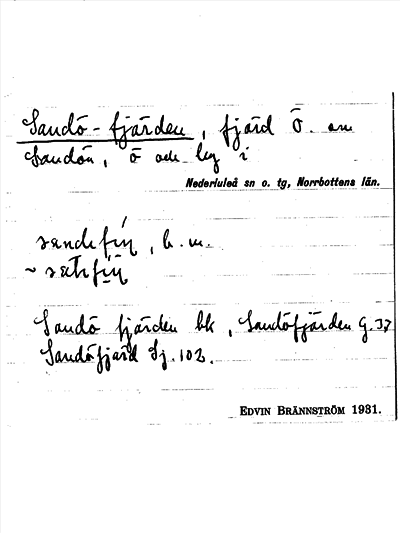 Sandö-fjärden, fjärd Ö. om
Sandön, ö och lzg i
Nederluleå sn o. tg, Norrbottens län.
b. m.
~
Sandö fjärden bk, Sandöfjärden G. 37
Sandöfjärd Sj. 102.
EDVIN BRÄNNSTRÖM 1931.